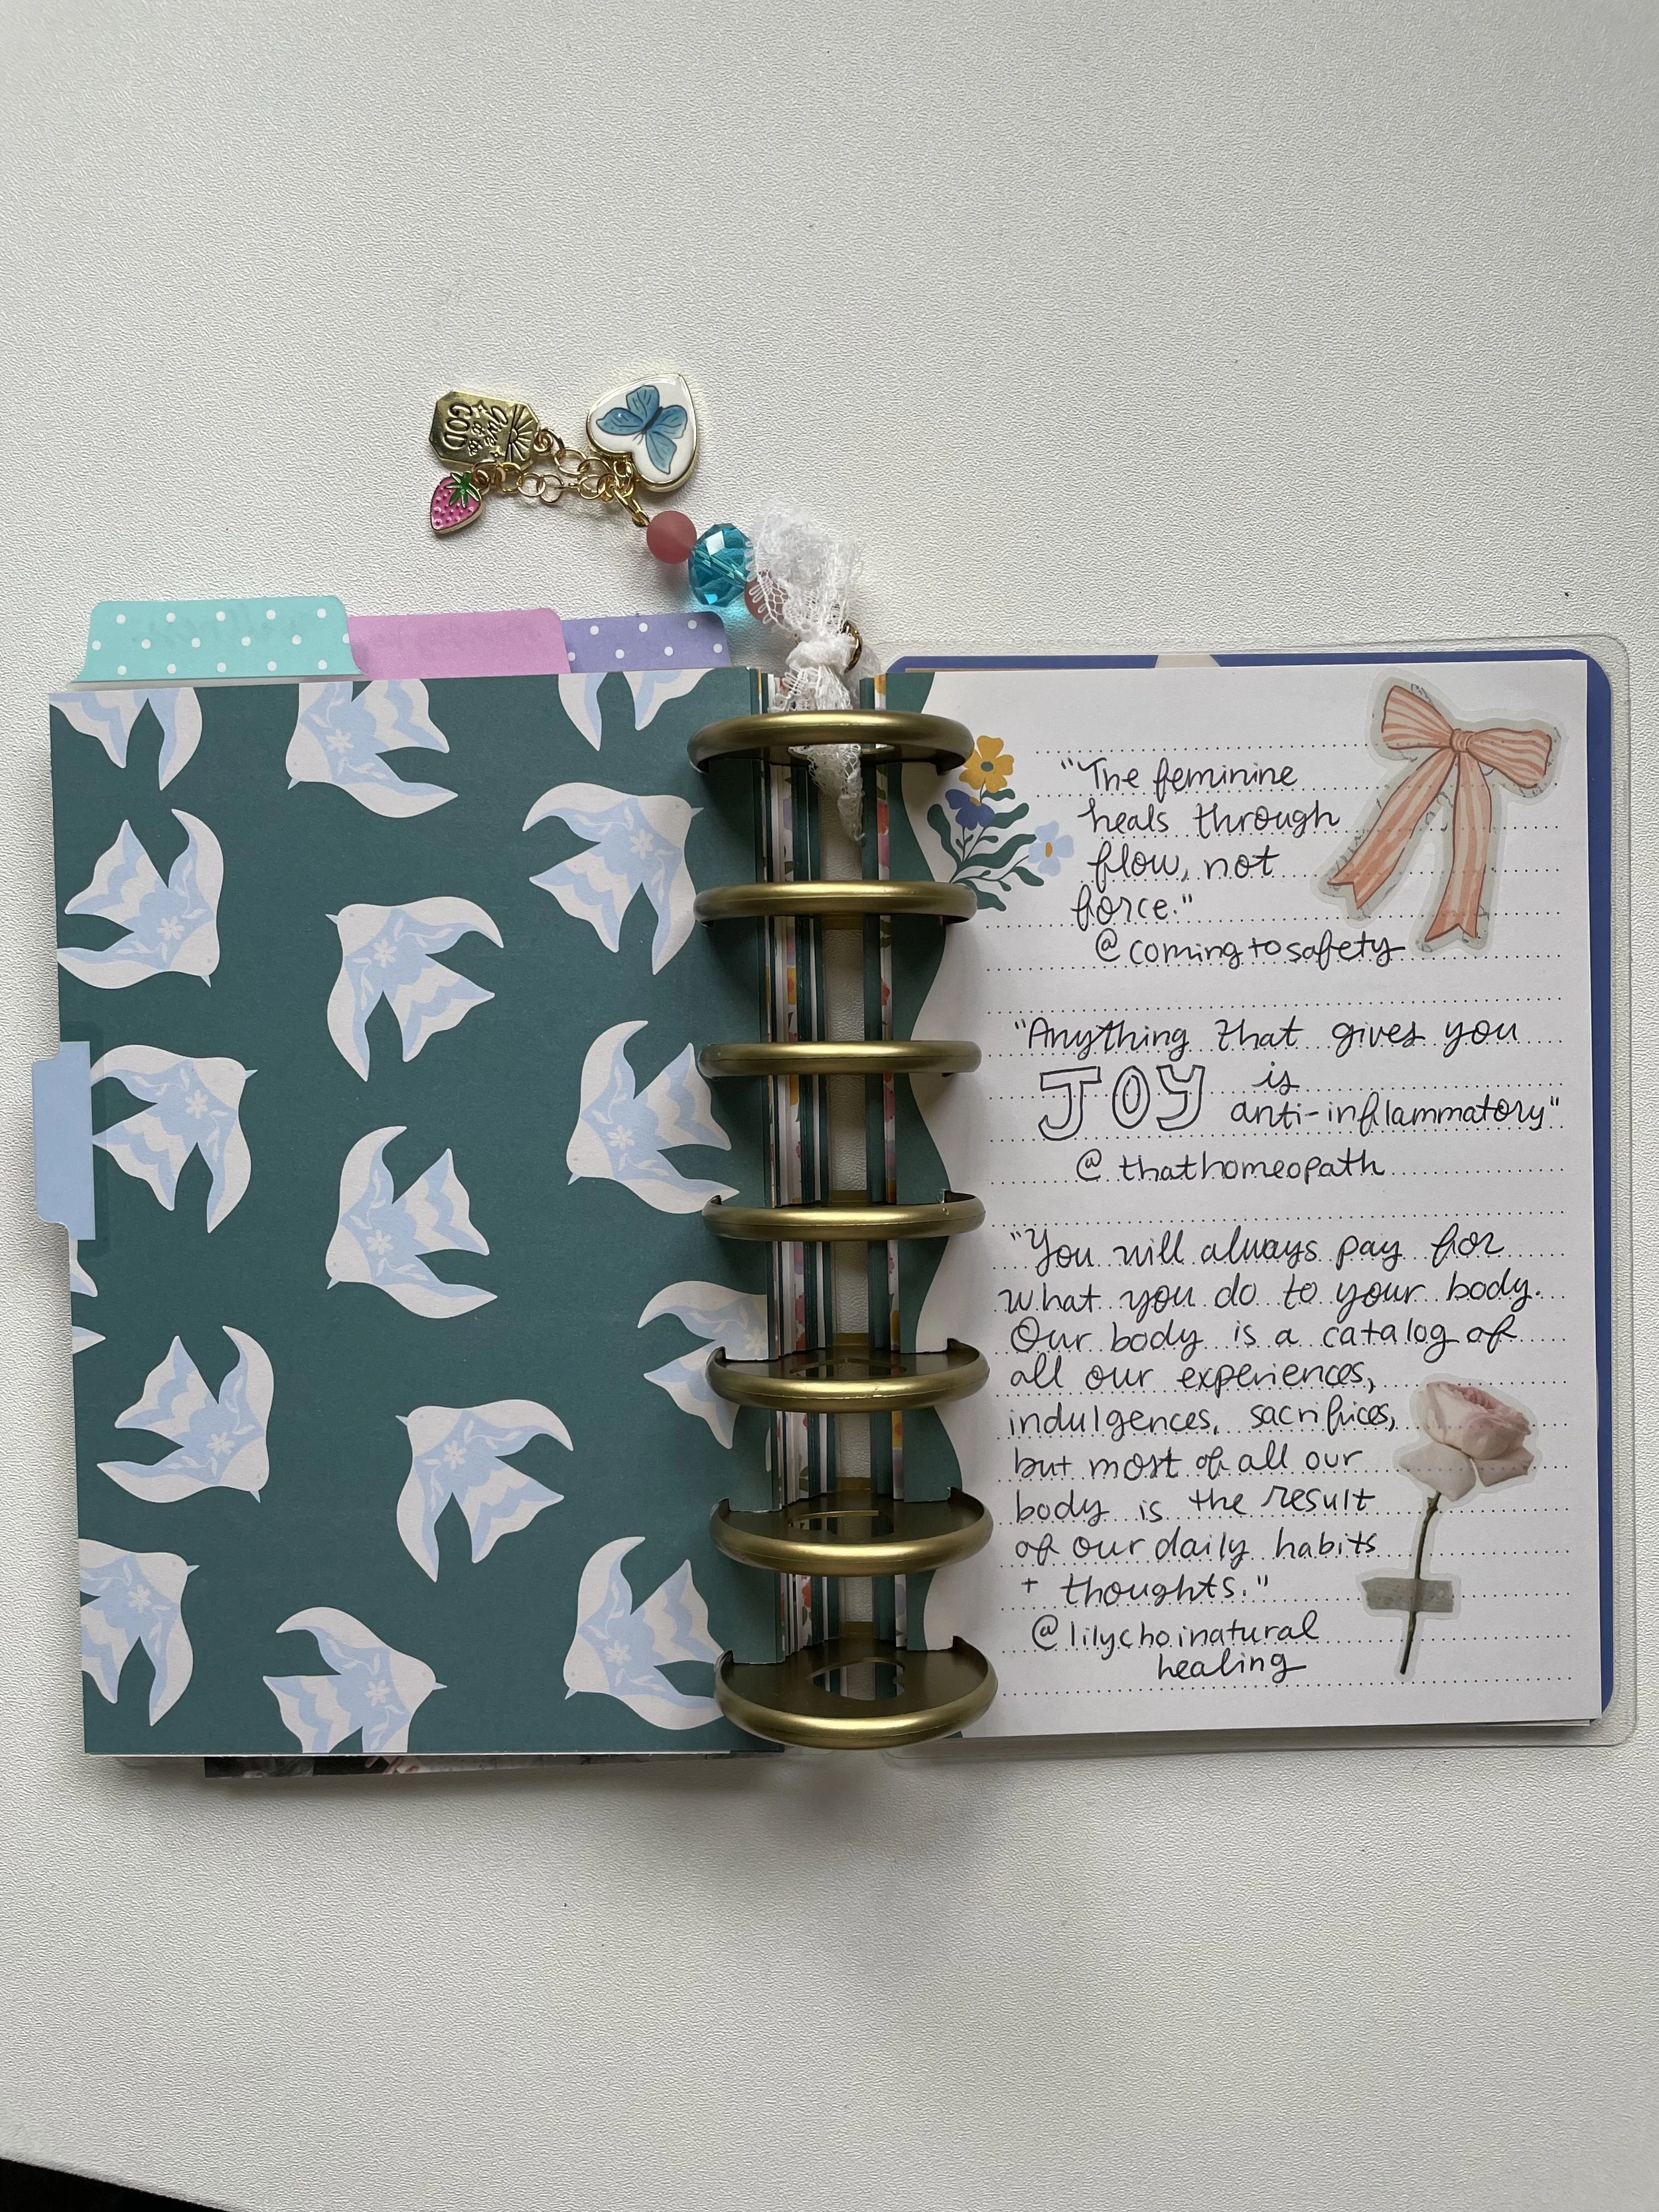 GOD
"The feminine
heals through
flow, not
force."
@comingtosafety
"Anything that gives you
JOY is
anti-inflammatory"
@thathomeopath
"You will always pay for
what you do to your body.
Our body is a catalog of
all our experiences,
indulgences, sacrifices,
but most of all our
body is the result
of our daily habits
+ thoughts."
@lilychoinatural
healing